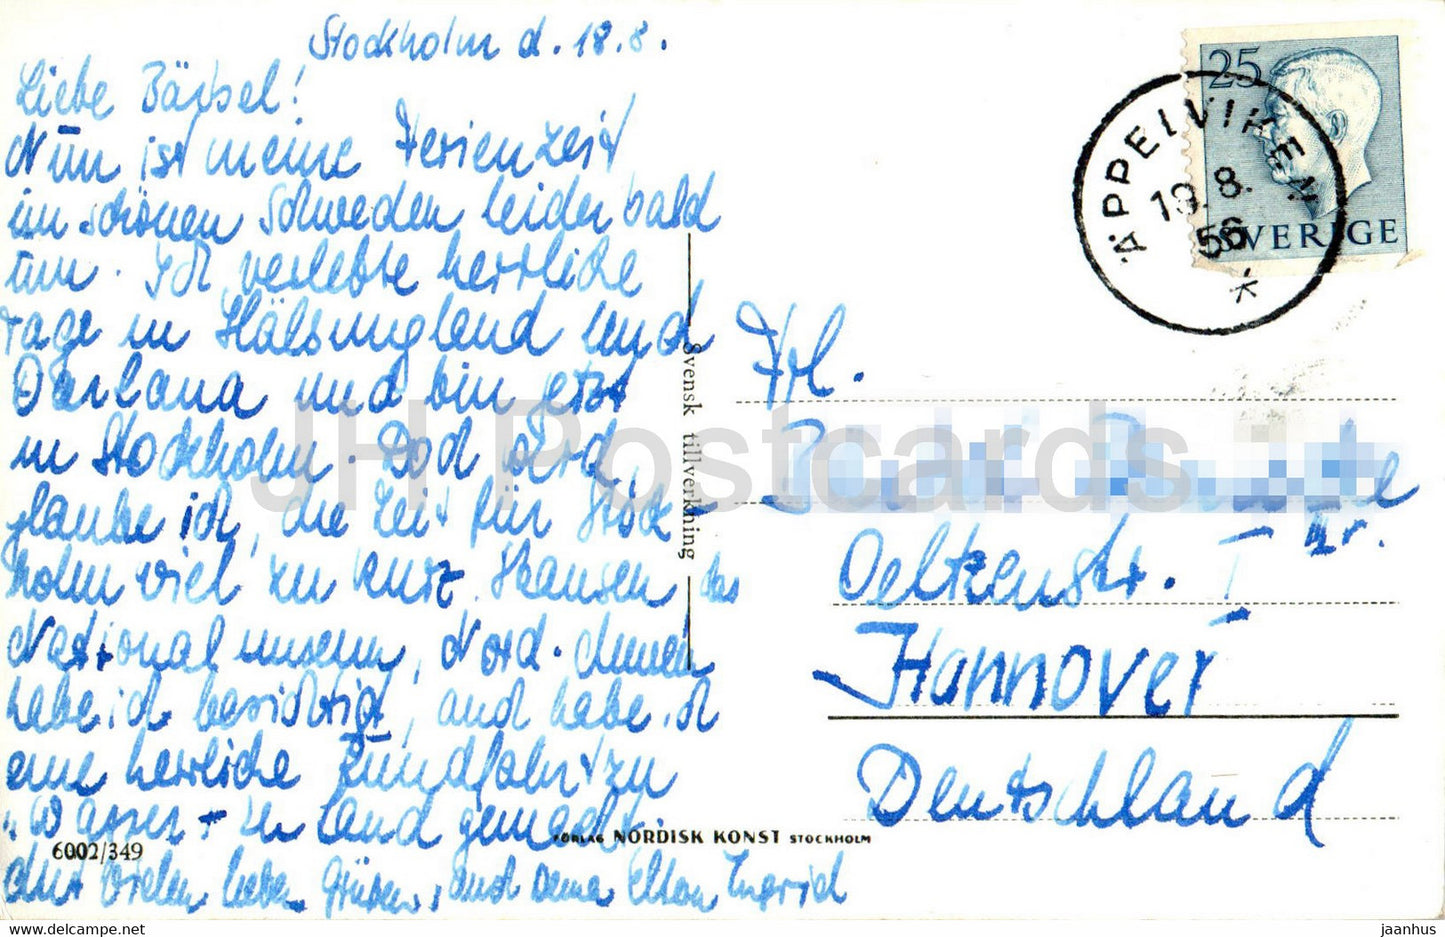 Stockholm d. 18.8.
Liebe Bärbel!
Nun ist meine Ferienzeit
im schönen Schweden leider bald
um. Ich verlebte herrliche
Tage in Hälsingland und
Darlana und bin jetzt
in Stockholm. Doch wird,
glaube ich, die Zeit für Stock-
holm viel zu kurz. Skansen, das
Nationalmuseum, Nord. Museum
habe ich besichtigt, und habe ich
eine herrliche Rundfahrt zu
Wasser + zu Land gemacht.
Mit vielen lieben Grüßen, auch Deine Eltern Ingrid
6002/349
Svensk tillverkning
FÖRLAG NORDISK KONST STOCKHOLM
25
SVERIGE
ÄPPELVIKEN
19.8.
56
Frl.
Oeltzenstr. I
Hannover
Deutschland
JH Postcards
jaanhus